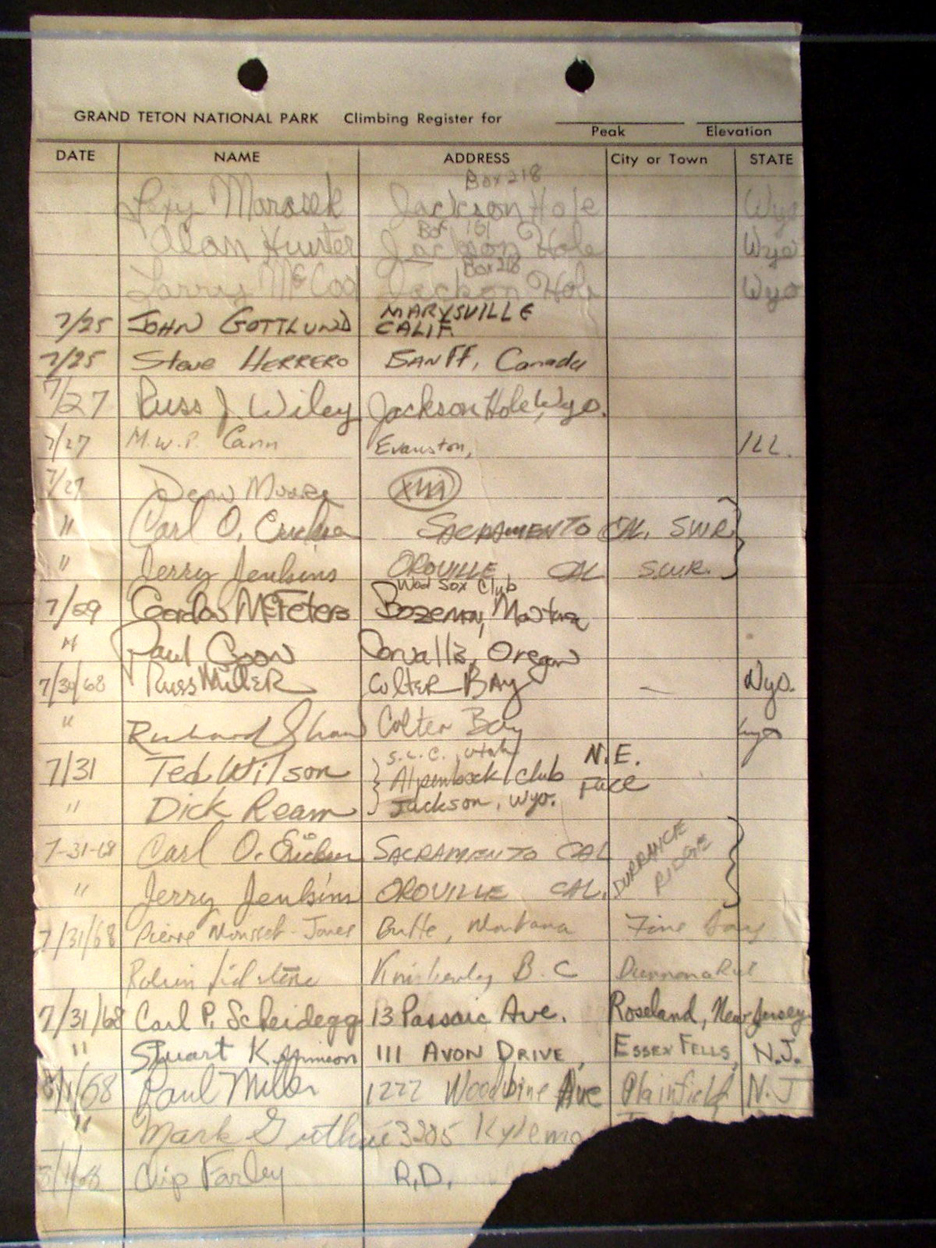 GRAND TETON NATIONAL PARK Climbing Register for
Peak Elevation
DATE NAME ADDRESS City or Town STATE
Box 218
Marosek Jackson Hole Wyo
Box 161
Alan Hunter Jackson Hole Wyo
Box 218
Larry McCoo Jackson Hole Wyo
7/25 JOHN GOTTLUND MARYSVILLE
CALIF
7/25 Steve HERRERO BANFF, Canada
7/27 Russ J. Wiley Jackson Hole, Wyo.
7/27 M.W.P. Cann Evanston, ILL.
7/27
" Carl O. SACRAMENTO CAL. SWR
" Jerry Jenkins OROVILLE CAL SWR.
Wool Sox Club
7/29 Gordon McFeters Bozeman, Montana
" Paul Coon Corvallis, Oregon
7/30/68 Russ MilleR COLTER BAY — Wyo.
" Richard Shaw Colter Bay Wyo
S.L.C. Utah
7/31 Ted Wilson Alpenbock Club N.E.
" Dick Ream Jackson, Wyo. FACE
7-31-68 Carl O. SACRAMENTO CAL DURRANCE
" Jerry Jenkins OROVILLE CAL. RIDGE
7/31/68 Pierre Jones Butte, Montana Fine day
Robin Kimberley B.C
7/31/68 Carl P. Scheidegg 13 Passaic Ave. Roseland, New Jersey
" Stuart K. 111 AVON DRIVE, ESSEX FELLS, N.J.
8/1/68 Paul Miller 1222 Woodbine Ave Plainfield N.J
" Mark Guthrie 3285
8/1/68 Chip Farley R.D.